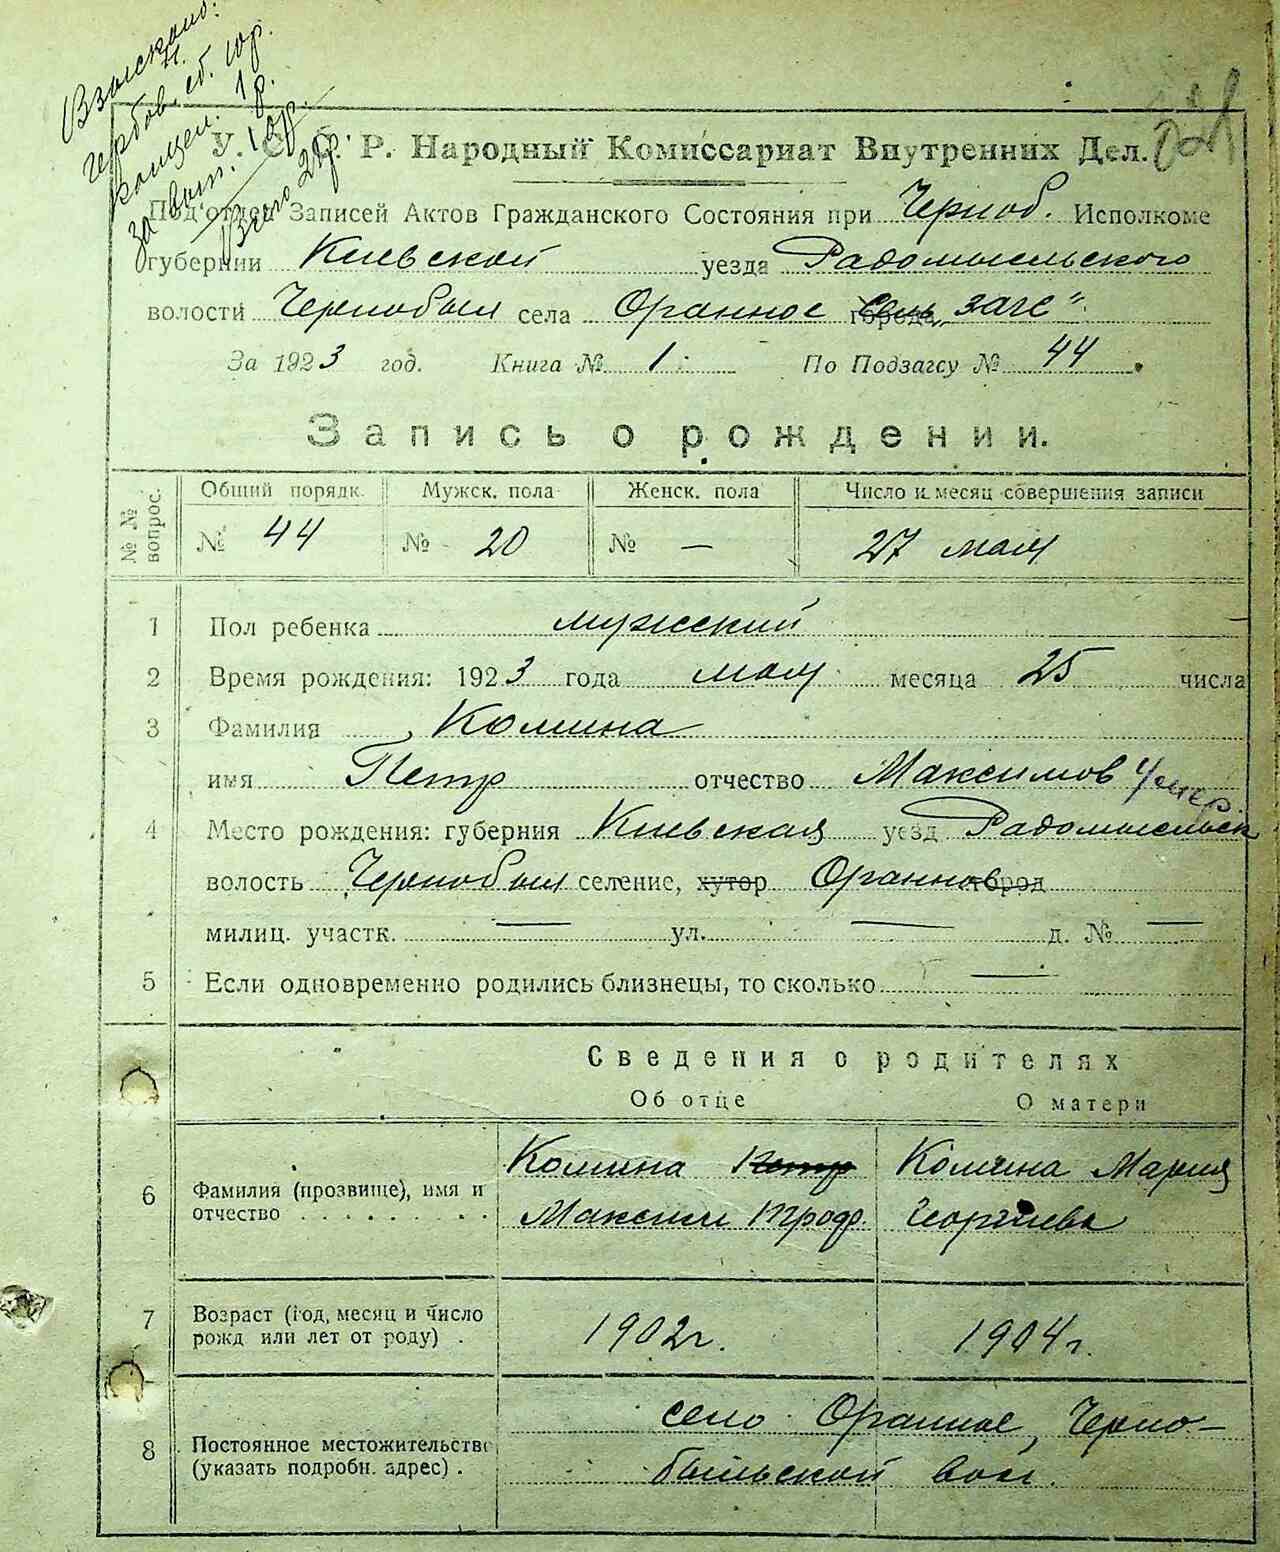 Взыскано:
гербов. сб. 10р.
канцел. 1р.
за вып. 10р.
Всего 21р.
У. С. С. Р. Народный Комиссариат Внутренних Дел.
Под'отдел Записей Актов Гражданского Состояния при Черноб. Исполкоме
губернии Киевской уезда Радомысльского
волости Чернобыл села Оранное города „загс"
За 1923 год. Книга № 1 По Подзагсу № 44
Запись о рождении.
№ № вопрос. Общий порядк. Мужск. пола Женск. пола Число и месяц совершения записи
№ 44 № 20 № — 27 мая
1 Пол ребенка мужский
2 Время рождения: 1923 года мая месяца 25 числа
3 Фамилия Комина
имя Петр отчество Максимов Умер.
4 Место рождения: губерния Киевская уезд Радомысльск
волость Чернобыл селение, хутор Оранное город
милиц. участк. — ул. — д. № —
5 Если одновременно родились близнецы, то сколько —
Сведения о родителях
Об отце О матери
Комина Петр Комина Мария
6 Фамилия (прозвище), имя и
отчество Максим Троф. Георгиева
7 Возраст (год, месяц и число
рожд или лет от роду) . 1902г. 1904г.
село Оранное, Черно-
8 Постоянное местожительство
(указать подробн. адрес) . быльской вол.